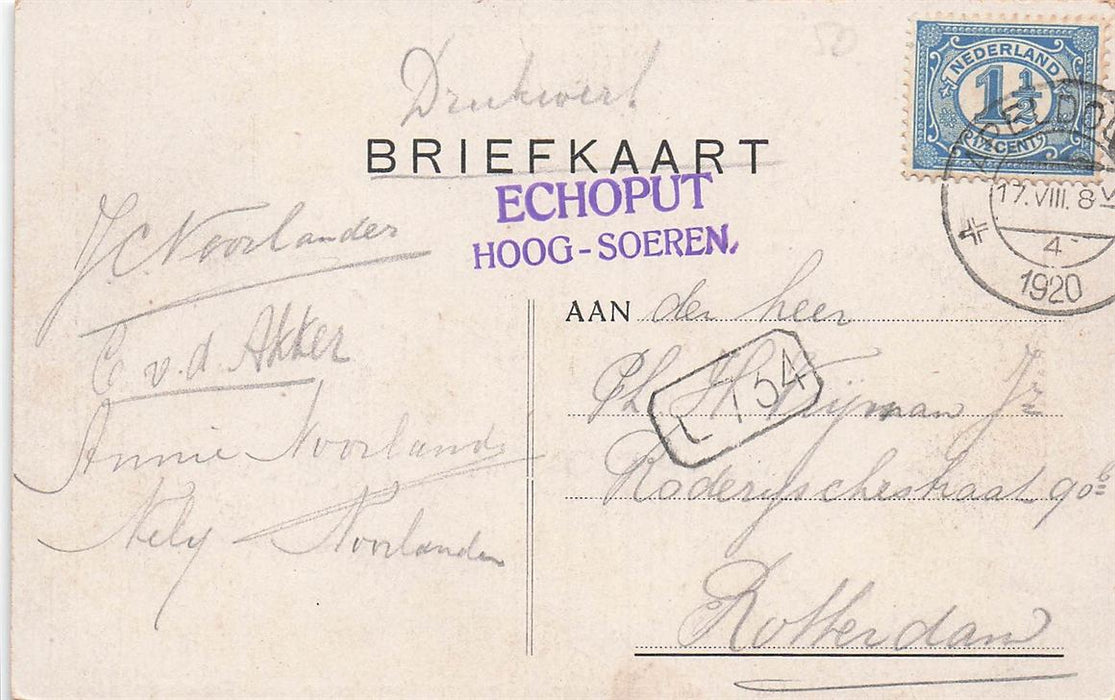 50
Drukwerk
BRIEFKAART
ECHOPUT
HOOG-SOEREN.
NEDERLAND
1½
1½ CENT
17.VIII.8-9V
4
1920
J.C. Noorlander
C v.d. Akker
Annie Noorlander
Nely Noorlander
AAN den heer
Ph. H. Jr
L 154
90b
Rotterdam